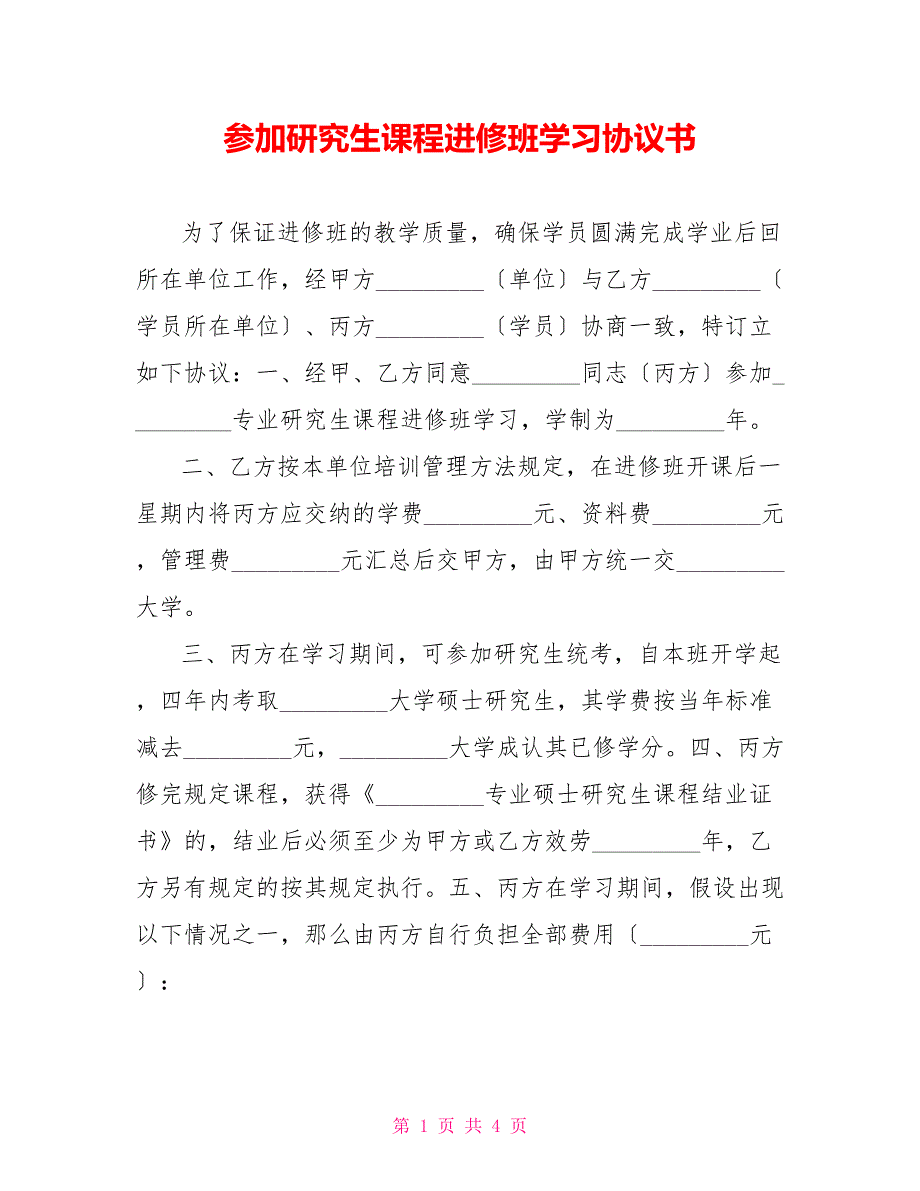 参加研究生课程进修班学习协议书
为了保证进修班的教学质量，确保学员圆满完成学业后回
所在单位工作，经甲方_________〔单位〕与乙方_________〔
学员所在单位〕、丙方_________〔学员〕协商一致，特订立
如下协议：一、经甲、乙方同意_________同志〔丙方〕参加_
________专业研究生课程进修班学习，学制为_________年。
二、乙方按本单位培训管理方法规定，在进修班开课后一
星期内将丙方应交纳的学费_________元、资料费_________元
，管理费_________元汇总后交甲方，由甲方统一交_________
大学。
三、丙方在学习期间，可参加研究生统考，自本班开学起
，四年内考取_________大学硕士研究生，其学费按当年标准
减去_________元，_________大学成认其已修学分。四、丙方
修完规定课程，获得《_________专业硕士研究生课程结业证
书》的，结业后必须至少为甲方或乙方效劳_________年，乙
方另有规定的按其规定执行。五、丙方在学习期间，假设出现
以下情况之一，那么由丙方自行负担全部费用〔_________元
〕：
第 1 页 共 4 页